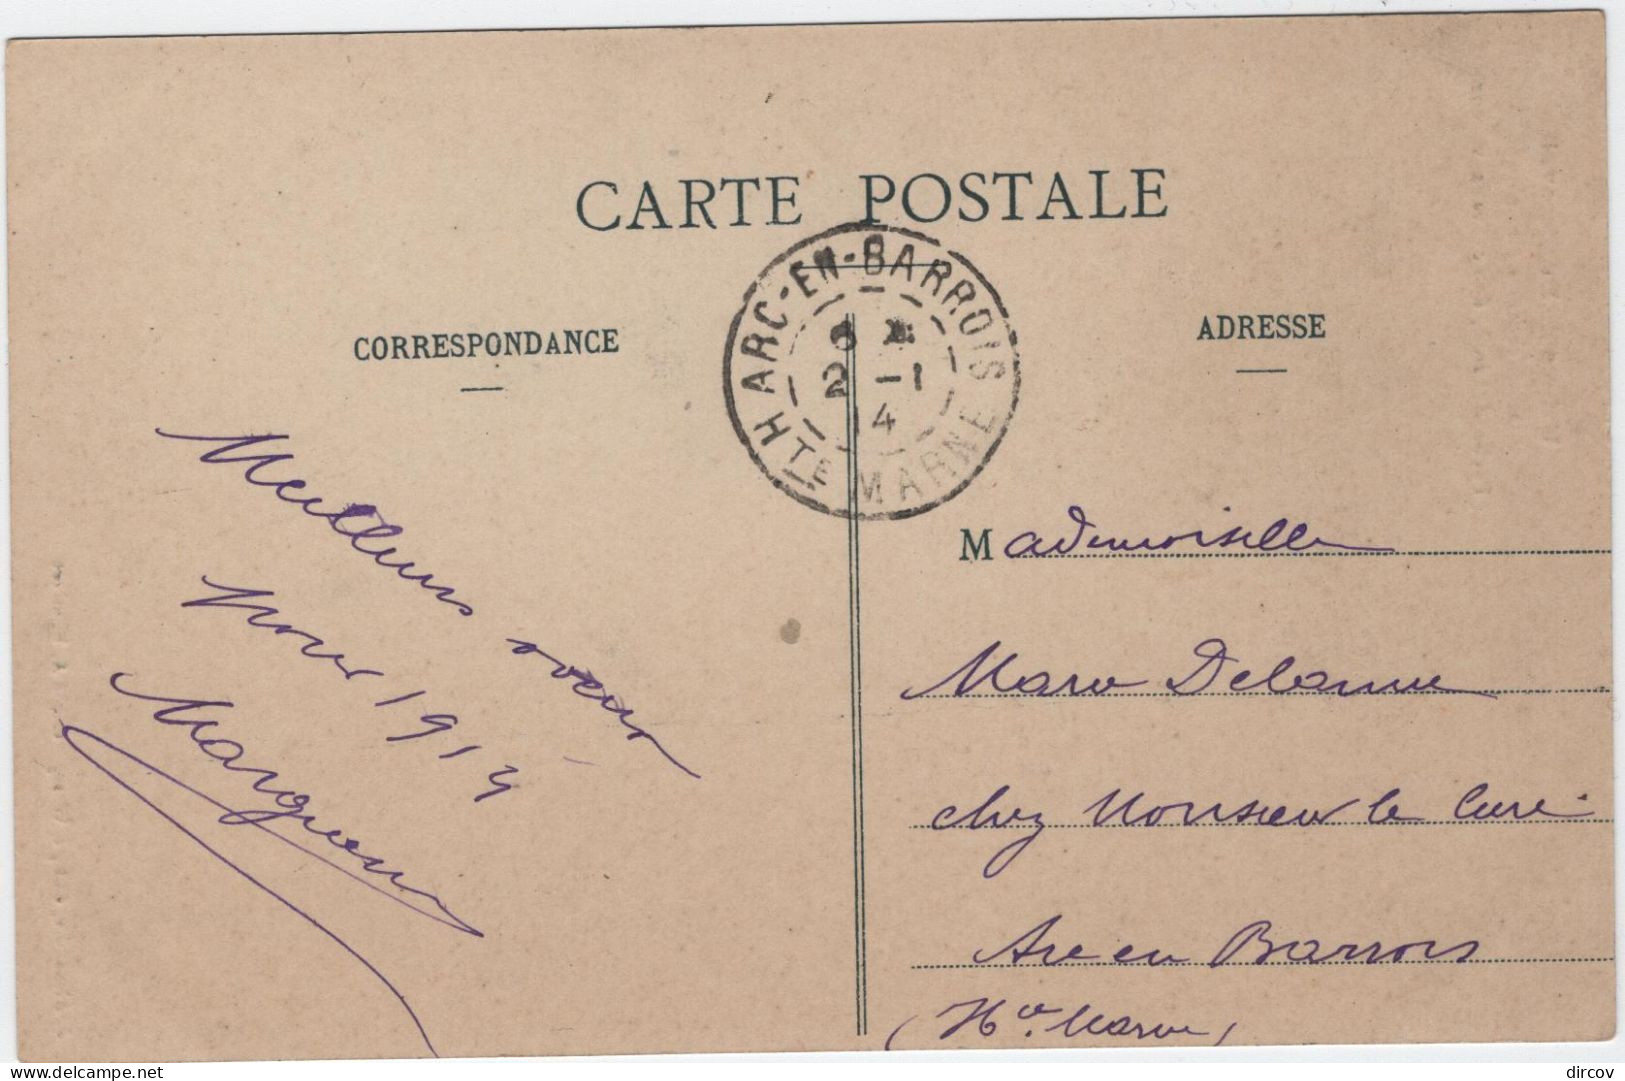 CARTE POSTALE
CORRESPONDANCE
ADRESSE
ARC-EN-BARROIS
2 -1
14
HTE MARNE
Meilleurs vœux
pour 1914
Marguerite
Mademoiselle
Marie Delanne
chez Monsieur le Curé
Arc en Barrois
(Hte Marne)
delcampe.net
dircov